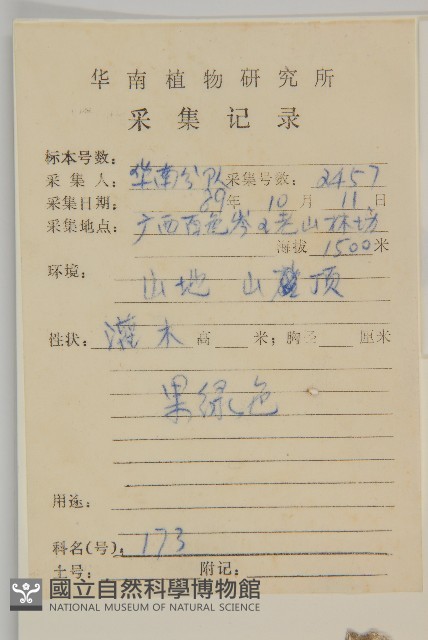 华南植物研究所
采集记录
标本号数：
采集人：华南分队 采集号数：2457
采集日期：89年10月11日
采集地点：广西百色岑王老山林场
海拔 1500米
环境：
山地 山 顶
性状：灌木 高 米；胸径 厘米
果绿色
用途：
科名(号)：173
土号： 附记：
國立自然科學博物館
NATIONAL MUSEUM OF NATURAL SCIENCE